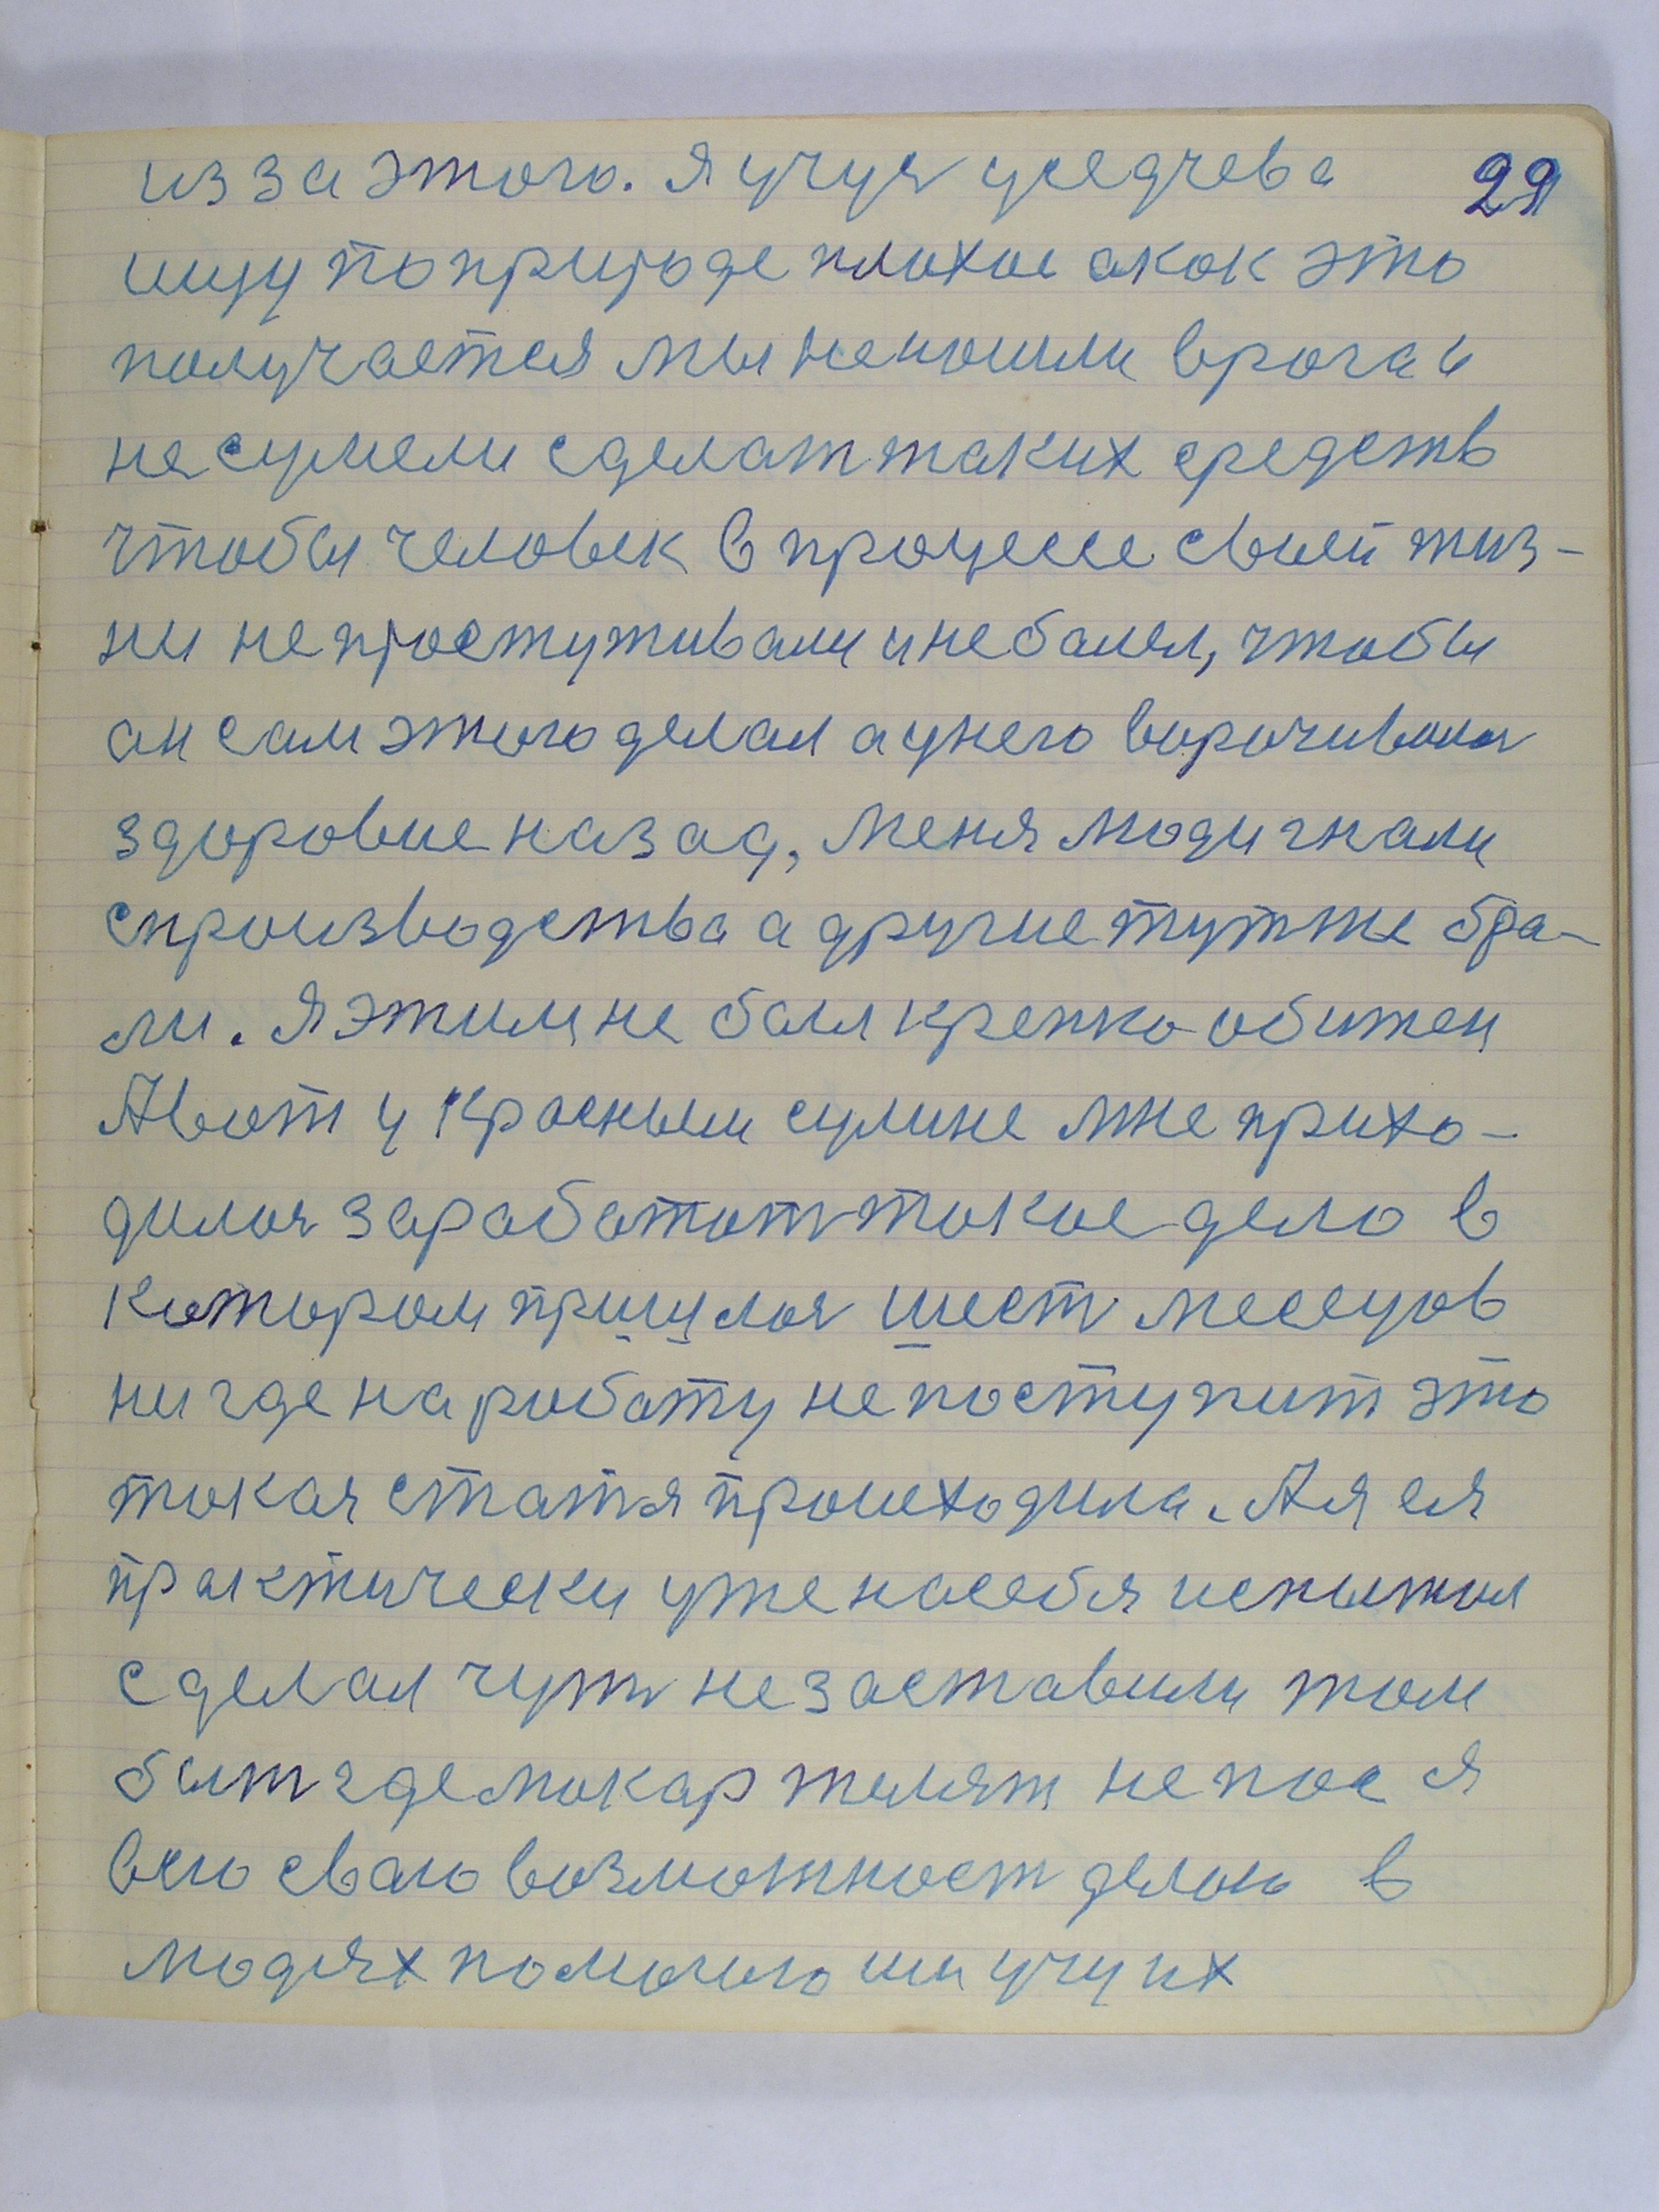 из за этого. Я учуся уседчева 29
ищу по природе плохое а как это
получается мы не нашли врача и
не сумели сделат таких средств
чтобы человек в процессе своей жиз-
ни не простуживали и не балел, чтобы
ан сам этого делал а у него ворочивался
здоровие назад, меня люди гнали
с производства а другие тут же бра-
ли. Я этим не бал крепко обижен
А вот у Красным сулине мне прихо-
дилося заработат такое дело в
котором пришлося шест месецов
ни где на работу не поступит это
такая статя проиходила. А я ея
практически уже на себя испытал
сделал чут не заставили там
быт где макар телят не пас я
всю сваю возможност делаю в
людях помогаю им учу их